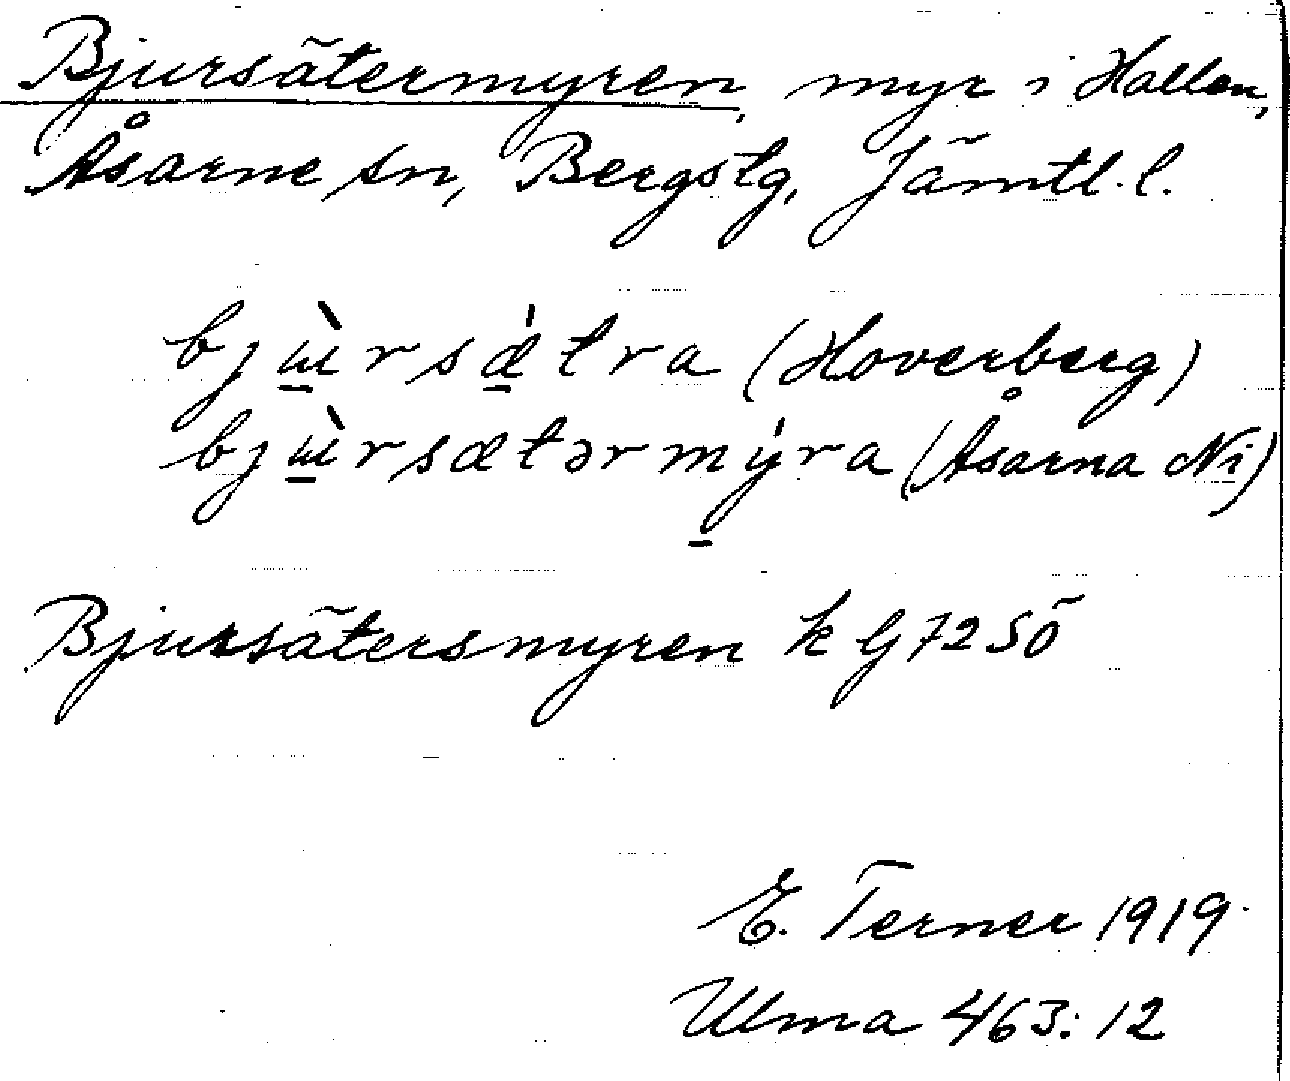 Bjursätermyren, myr i Hallen,
Åsarne sn, Bergs tg, Jämtl. l.
bjɯ̲̀rsǽ̲tra (Hoverberg)
bjɯ̲̀rsætərmý̲ra (Åsarna Ni)
Bjursätersmyren k G 72 SÖ
E. Terner 1919
Ulma 463:12